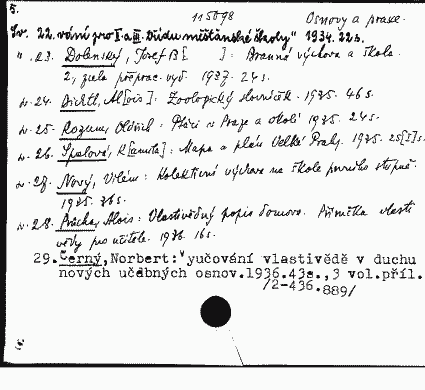 5. 115098 Osnovy a praxe.
Sv. 22. vání pro I. a III. třídu měšťanské školy" 1934. 22 s.
" 23. Dolenský, Josef B[ ]: Branná výchova a škola.
2, zcela přeprac. vyd. 1937. 24 s.
" 24. Al[ois]: Zoologický slovníček. 1935. 46 s.
" 25. Rozum, Oldřich: Ptáci v Praze a okolí 1935. 24 s.
" 26. Špalová, K[amila]: Mapa a plán Velké Prahy. 1935. 25[1] s.
" 27. Nový, Vilém: Kolektivní výchova na škole prvního stupně.
1935. 36 s.
" 28. Průcha, Alois: Vlastivědný popis domova. Příručka vlasti
vědy pro učitele. 1936. 16 s.
29. Černý, Norbert: Vyučování vlastivědě v duchu
nových učebných osnov. 1936. 43 s., 3 vol. příl.
/2-436.889/